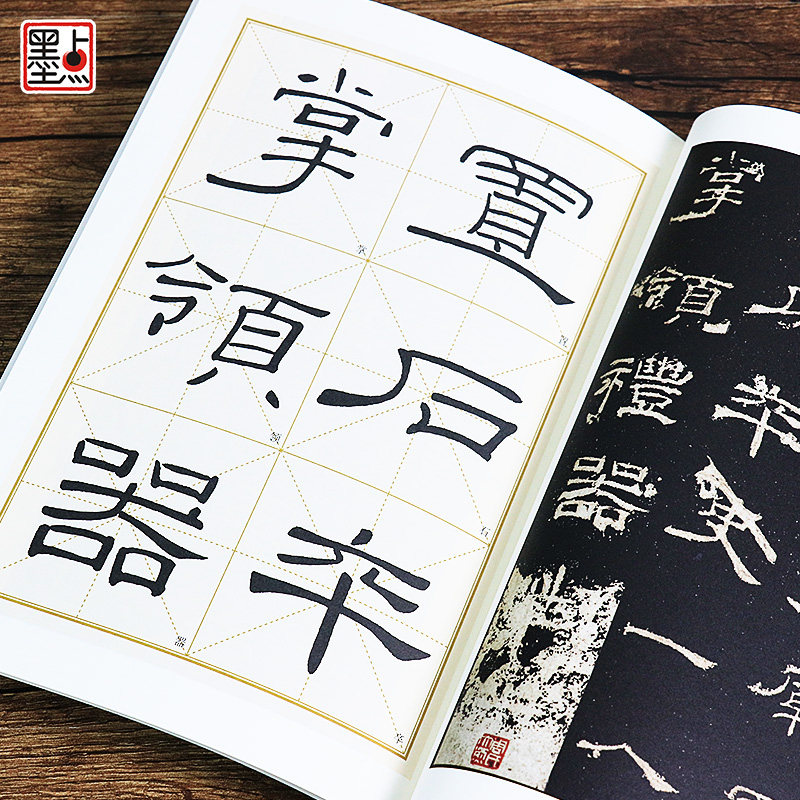 墨點
置石卒
掌領器
置
石
卒
掌
領
器
卒史一人
掌領禮器